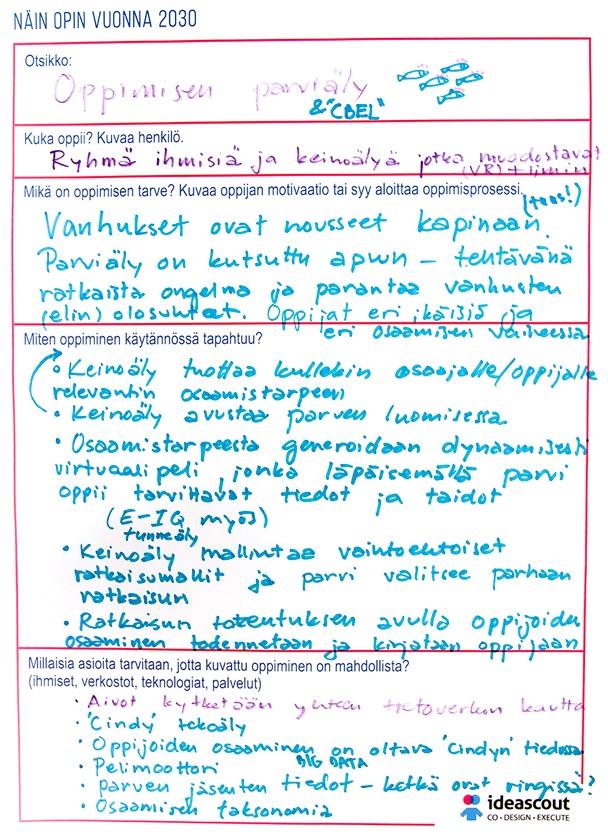 NÄIN OPIN VUONNA 2030
Otsikko:
Oppimisen parviäly
& "CBEL"
Kuka oppii? Kuvaa henkilö.
Ryhmä ihmisiä ja keinoälyä jotka muodostavat
(VR) tiimin
Mikä on oppimisen tarve? Kuvaa oppijan motivaatio tai syy aloittaa oppimisprosessi.
(taas!)
Vanhukset ovat nousseet kapinaan.
Parviäly on kutsuttu apuun – tehtävänä
ratkaista ongelma ja parantaa vanhusten
(elin) olosuhteet. Oppijat eri ikäisiä ja
eri osaamisen vaiheessa
Miten oppiminen käytännössä tapahtuu?
• Keinoäly tuottaa kullekin osaajalle/oppijalle
relevantin osaamistarpeen
• Keinoäly avustaa parven luomisessa
• Osaamistarpeesta generoidaan dynaamisesti
virtuaalipeli, jonka läpäisemällä parvi
oppii tarvittavat tiedot ja taidot
(E-IQ myös)
tunneäly
• Keinoäly mallintaa vaihtoehtoiset
ratkaisumallit ja parvi valitsee parhaan
ratkaisun
• Ratkaisun toteutuksen avulla oppijoiden
osaaminen todennetaan ja kirjataan oppijaan
Millaisia asioita tarvitaan, jotta kuvattu oppiminen on mahdollista?
(ihmiset, verkostot, teknologiat, palvelut)
• Aivot kytketään yhteen tietoverkon kautta
• 'Cindy' tekoäly
• Oppijoiden osaaminen on oltava 'Cindyn' tiedossa
• Pelimoottori BIG DATA
• parven jäsenten tiedot – ketkä ovat ringissä?
• Osaamisen taksonomia
ideascout
CO • DESIGN • EXECUTE